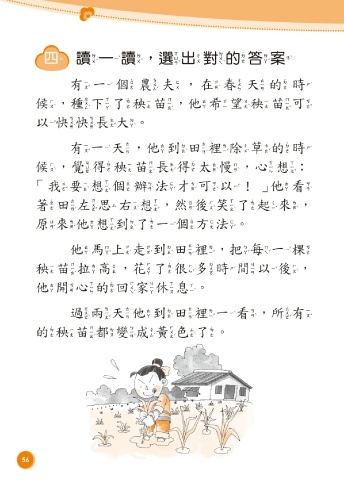 四 讀一讀，選出對的答案
有一個農夫，在春天的時
候，種下了秧苗，他希望秧苗可
以快快長大。
有一天，他到田裡除草的時
候，覺得秧苗長得太慢，心想：
「我要想個辦法才可以！」他看
著田左思右想，然後笑了起來，
原來他想到了一個方法。
他馬上走到田裡，把每一棵
秧苗拉高，花了很多時間以後，
他開心的回家休息。
過兩天他到田裡一看，所有
的秧苗都變成黃色了。
56